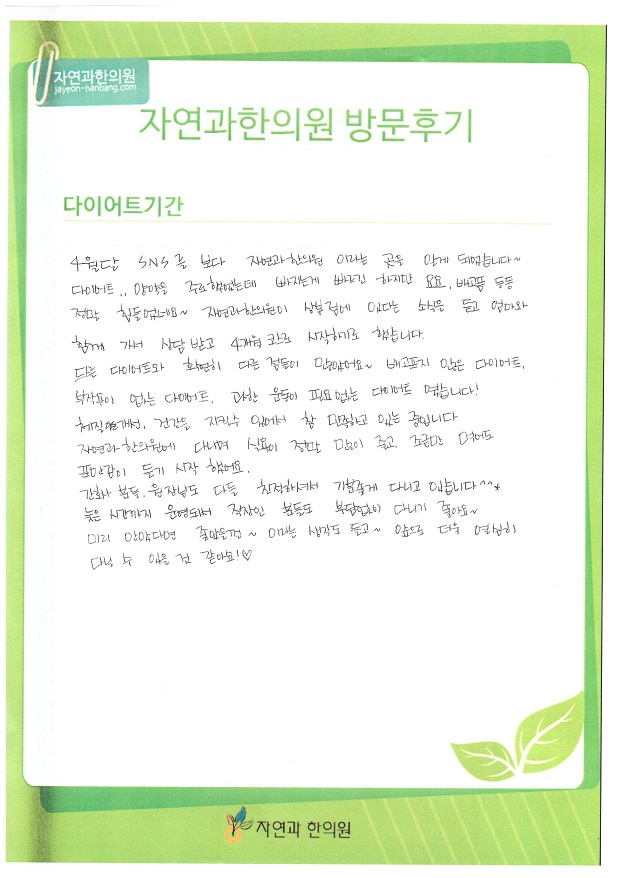 자연과한의원
jayeon-hanbang.com
자연과한의원 방문후기
다이어트기간
4월달 SNS를 보다 자연과한의원 이라는 곳을 알게 되었습니다~
다이어트.. 양약을 주로했었는데 빠지는게 빠르긴 하지만 요요, 배고픔 등등
정말 힘들었네요~ 자연과한의원이 상봉점에 있다는 소식을 듣고 엄마와
함께 가서 상담받고 4개월 코스로 시작하기로 했습니다.
다른 다이어트와 확연히 다른 점들이 많았어요~ 배고프지 않은 다이어트,
부작용이 없는 다이어트, 과한 운동이 필요없는 다이어트 였습니다!
체질개선, 건강을 지킬수 있어서 참 만족하고 있는 중입니다
자연과한의원에 다니며 식욕이 정말 많이 줄고, 조금만 먹어도
포만감이 들기 시작 했어요.
간호사 분들, 원장님도 다들 친절하셔서 기분좋게 다니고 있습니다^^*
늦은 시간까지 운영되서 직장인 분들도 부담없이 다니기 좋아요~
미리 알았다면 좋았을껄~ 이라는 생각도 들고~ 앞으로 더욱 열심히
다닐 수 있을 것 같아요!♡
자연과 한의원